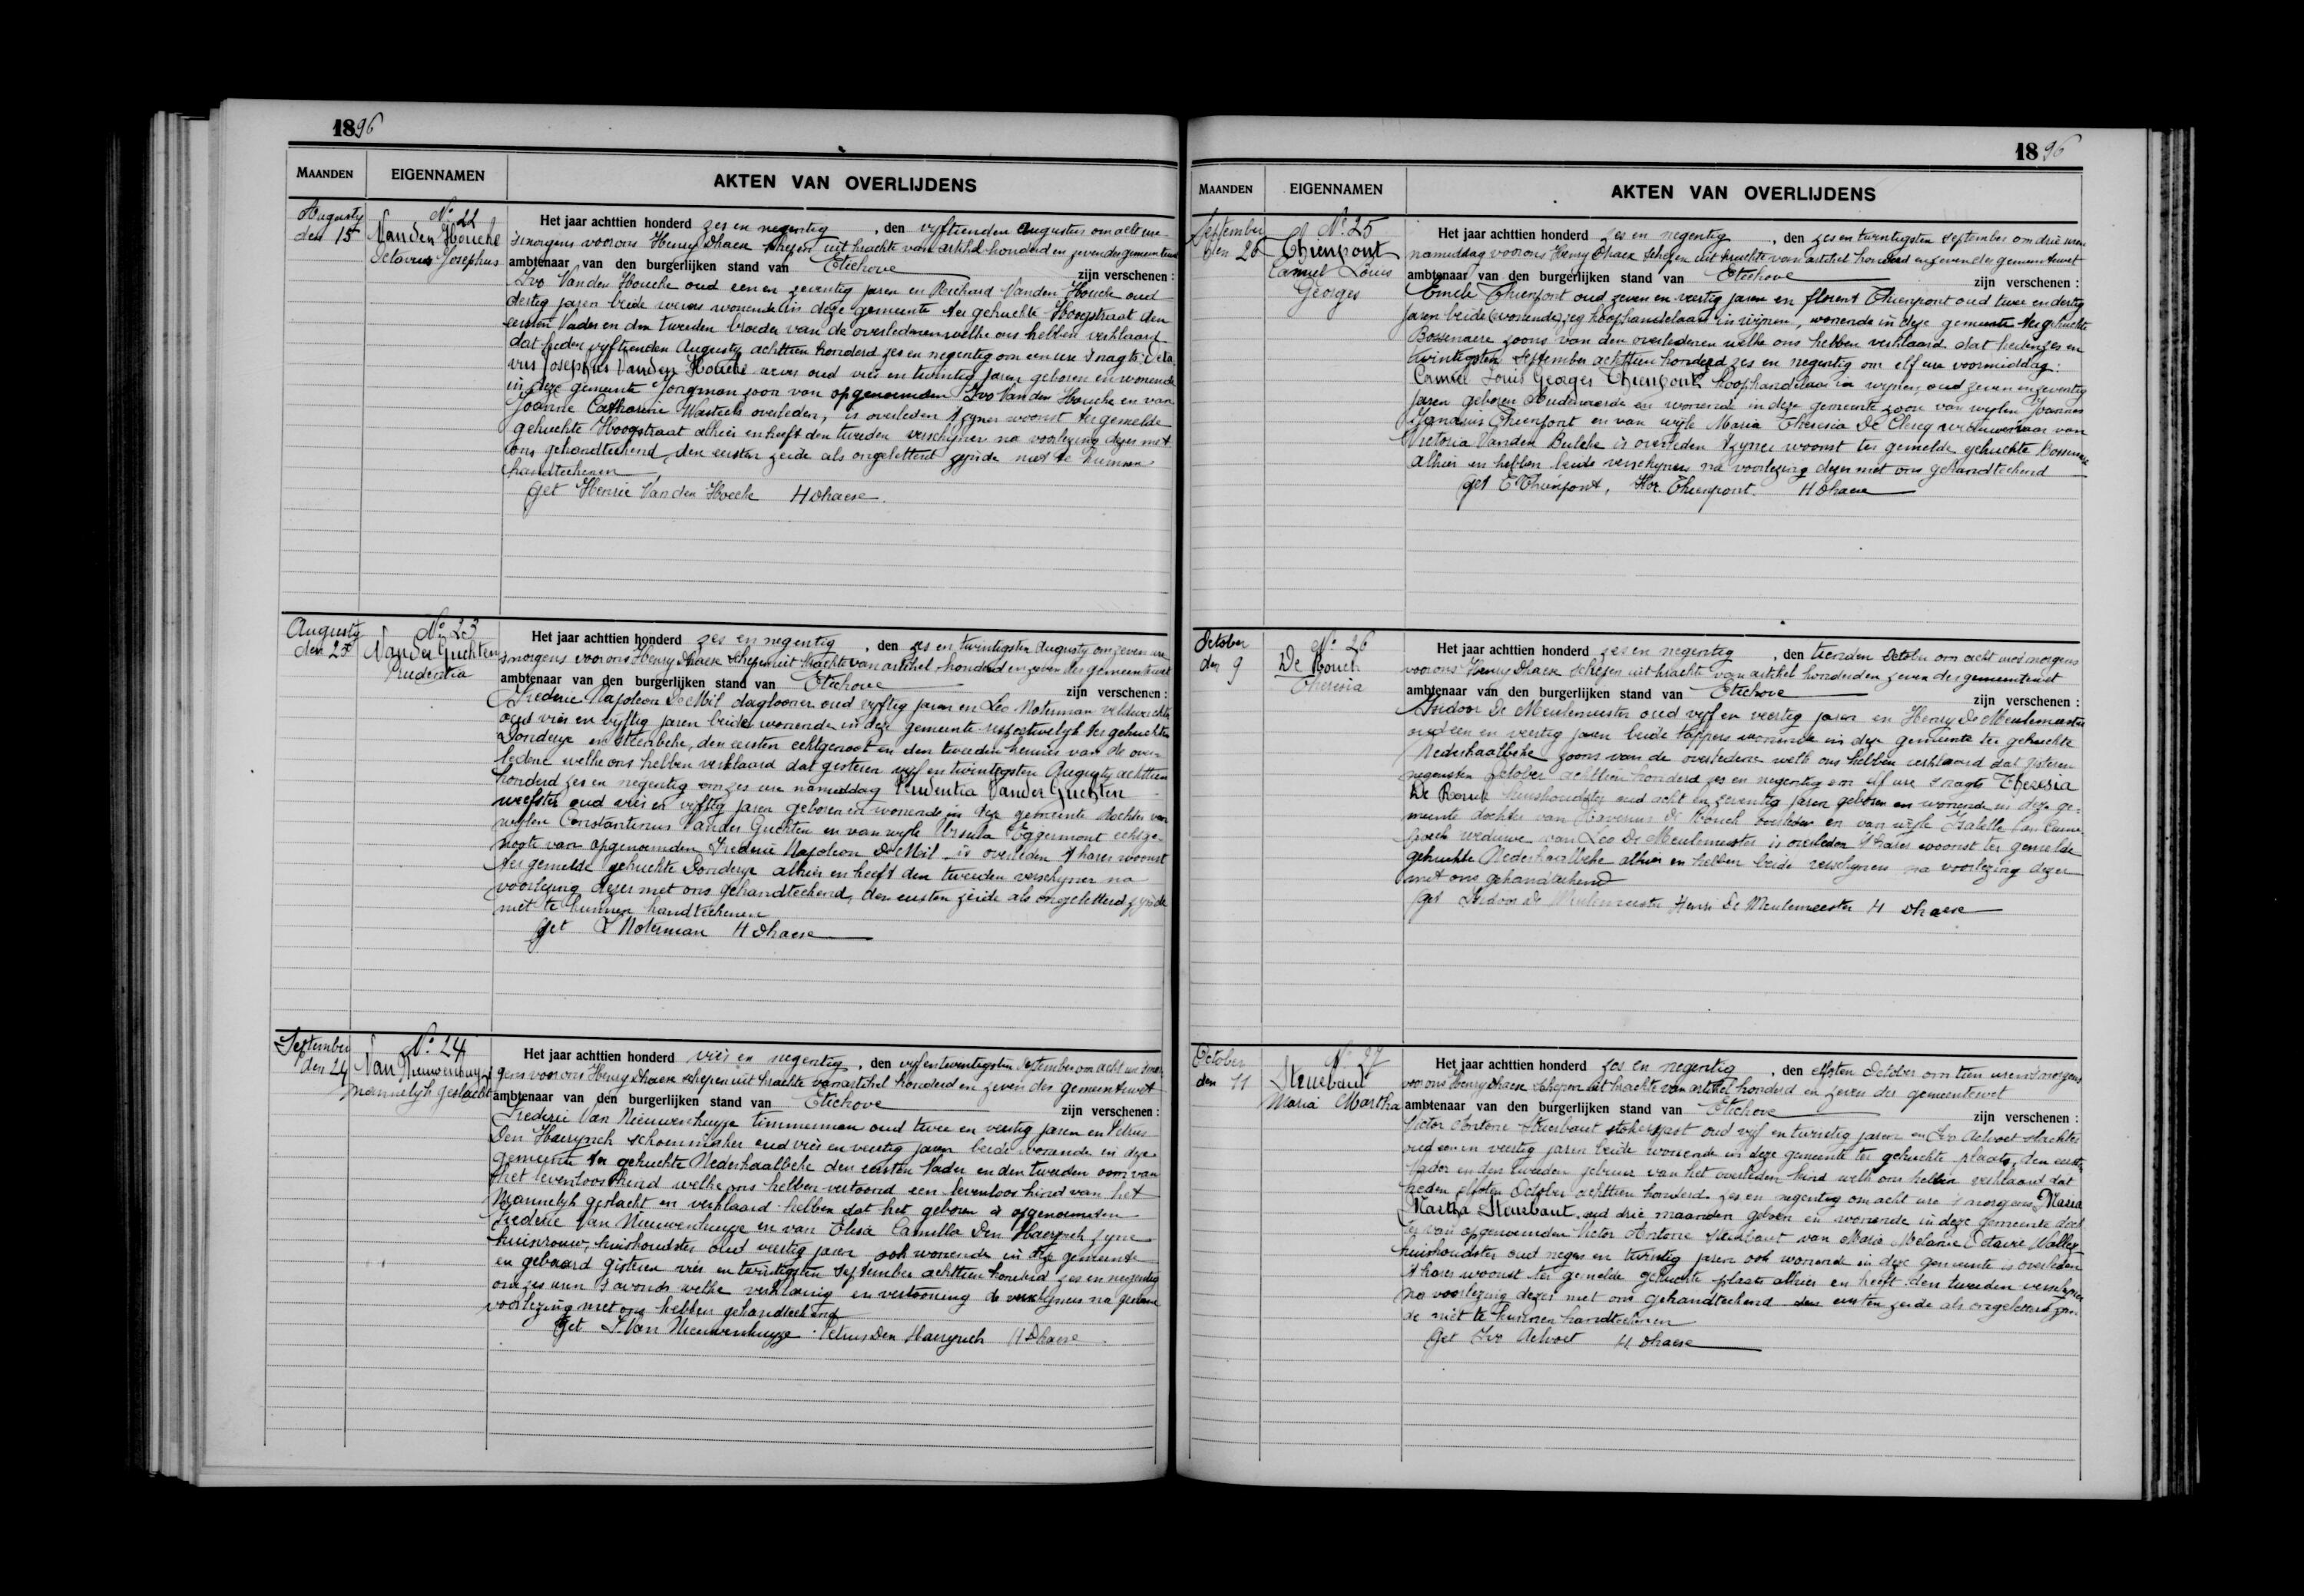 1896
MAANDEN
EIGENNAMEN
AKTEN VAN OVERLIJDENS
Augusty
den 15
No 22
Vanden Houcke
Octavius Josephus
Het jaar achttien honderd zes en negentig, den vyftienden Augustus om acht ure
'smorgens voor ons Henry Dhaese schepen uit krachte van artikel honderd en zeven der gemeentewet
ambtenaar van den burgerlijken stand van Etichove zijn verschenen :
Ivo Vanden Houcke oud een en zeventig jaren en Richard Vanden Houcke oud
dertig jaren beide wevers wonende in deze gemeente ter gehuchte Hoogstraat den
eersten Vader en den tweeden broeder van de overledenen welke ons hebben verklaard
dat heden vyftienden Augusty achttien honderd zes en negentig om een ure 's nagts Octa
vius Josephus Vanden Houcke wever oud vier en twintig jaren geboren en wonende
in deze gemeente Jongman zoon van opgenoemden Ivo Vanden Houcke en van
Joanne Catharine Wastiels overleden, is overleden t'zynen woonst ter gemelde
gehuchte Hoogstraat alhier en heeft den tweeden verschyner na voorlezing dezes met
ons gehandteekend, den eersten zeide als ongeletterd zynde niet te kunnen
handteekenen
Get Henrie Vanden Hoecke H Dhaese.
Augusty
den 25
No 23
Vander Guchten
Prudentia
Het jaar achttien honderd zes en negentig, den zes en twintigsten Augusty om zeven ure
'smorgens voor ons Henry Dhaese schepen uit krachte van artikel honderd en zeven der gemeentewet
ambtenaar van den burgerlijken stand van Etichove zijn verschenen :
Frederic Napoleon De Mil daglooner oud vyftig jaren en Leo Noterman veldwachter
oud vier en vyftig jaren beide wonende in deze gemeente respectivelyk ter gehuchten
Donderye en Steenbeke, den eersten echtgenoot en den tweeden kennis van de over-
ledene welke ons hebben verklaard dat gisteren vyf en twintigsten Augusty achttien
honderd zes en negentig om zes ure namiddag Prudentia Vander Guchten
weefster oud vier en vyftig jaren geboren en wonende in deze gemeente dochter van
wylen Constantinus Vander Guchten en van wyle Ursula Eggermont echtge-
noote van opgenoemden Frederic Napoleon De Mil is overleden t' haren woonst
ter gemelde gehuchte Donderye alhier en heeft den tweeden verschyner na
voorlezing dezes met ons gehandteekend, den eersten zeide als ongeletterd zynde
niet te kunnen handteekenen
Get L Noterman H Dhaese
September
den 24
No 24
Van Nieuwenhuyze
mannelyk geslacht
Het jaar achttien honderd vier en negentig, den vyf en twintigsten September om acht ure 's mor
gens voor ons Henry Dhaese schepen uit krachte van artikel honderd en zeven der gemeentewet
ambtenaar van den burgerlijken stand van Etichove zijn verschenen :
Frederic Van Nieuwenhuyze timmerman oud twee en veertig jaren en Petrus
Den Haerynck schoenmaker oud vier en veertig jaren beide wonende in deze
gemeente ter gehuchte Nederhaalbeke den eersten Vader en den tweeden oom van
het levenloos kind welke ons hebben vertoond een levenloos kind van het
Mannelyk geslacht en verklaard hebben dat het geboren is opgenoemden
Frederic Van Nieuwenhuyze en van Elisa Camilla Den Haerynck zyne
huisvrouw, huishoudster oud veertig jaren ook wonende in deze gemeente
en gebaard gisteren vier en twintigsten September achttien honderd zes en negentig
om zes uren 's avonds welke verklaring en vertooning de verschyners na gedane
voorlezing met ons hebben gehandteekend
Get F. Van Nieuwenhuyze Petrus Den Haerynck H Dhaese
1896
MAANDEN
EIGENNAMEN
AKTEN VAN OVERLIJDENS
September
den 26
No 25
Thienpont
Camiel Louis
Georges
Het jaar achttien honderd zes en negentig, den zes en twintigsten September om drie uren
namiddag voor ons Henry Dhaese schepen uit krachte van artikel honderd en zeven der gemeentewet
ambtenaar van den burgerlijken stand van Etichove zijn verschenen :
Emile Thienpont oud zeven en veertig jaren en florent Thienpont oud twee en dertig
jaren beide (wonende) zeg koophandelaars in wijnen, wonende in deze gemeente ter gehuchte
Bossenaere zoons van den overledenen welke ons hebben verklaard dat heden zes en
twintigsten September achttien honderd zes en negentig om elf ure voormiddag:
Camiel Louis Georges Thienpont koophandelaar in wynen, oud zeven en zeventig
jaren geboren Audenaerde en wonende in deze gemeente zoon van wylen Joannes
Ignatius Thienpont en van wyle Maria Theresia De Clercq weduwenaar van
Victoria Vanden Bulcke is overleden t'zynen woonst ter gemelde gehuchte Bossenaere
alhier en hebben beide verschyners na voorlezing dezes met ons gehandteekend
Get E Thienpont, Flor. Thienpont. H Dhaese
October
den 9
No 26
De Rouck
Theresia
Het jaar achttien honderd zes en negentig, den tienden October om acht ure 's morgens
voor ons Henry Dhaese schepen uit krachte van artikel honderd en zeven der gemeentewet
ambtenaar van den burgerlijken stand van Etichove zijn verschenen :
Isidoor De Meulemeester oud vyf en veertig jaren en Henry De Meulemeester
oud een en veertig jaren beide tappers wonende in deze gemeente ter gehuchte
Nederhaalbeke zoons van de overledene welk ons hebben verklaard dat gisteren
negensten October achttien honderd zes en negentig om elf ure 's nagts Theresia
De Rouck huishoudster oud acht en zeventig jaren geboren en wonende in deze ge-
meente dochter van Xaverius De Rouck overleden en van wyle Isabelle
weduwe van Leo De Meulemeester is overleden t' hares woonst ter gemelde
gehuchte Nederhaalbeke alhier en hebben beide verschyners na voorlezing dezes
met ons gehandteekend
Get Isidoor De Meulemeester Henri De Meulemeester H Dhaese
October
den 11
No 27
Steurbaut
Maria Martha
Het jaar achttien honderd zes en negentig, den elfsten October om tien uren 's morgens
voor ons Henry Dhaese schepen uit krachte van artikel honderd en zeven der gemeentewet
ambtenaar van den burgerlijken stand van Etichove zijn verschenen :
Victor Antone Steurbaut stokersgast oud vyf en twintig jaren en Ivo Aelvoet
oud een en veertig jaren beide wonende in deze gemeente ter gehuchte plaats, den eersten
Vader en den tweeden gebuur van het overleden kind welk ons hebben verklaard dat
heden elfsten October achttien honderd zes en negentig om acht ure 's morgens Maria
Martha Steurbaut, oud drie maanden geboren en wonende in deze gemeente doch
ter van opgenoemden Victor Antone Steurbaut van Maria Melanie Octavie
huishoudster oud negen en twintig jaren ook wonende in deze gemeente is overleden
t' hares woonst ter gemelde gehuchte plaats alhier en heeft den tweeden verschyner
na voorlezing dezes met ons gehandteekend den eersten zeide als ongeletterd zyn-
de niet te kunnen handteekenen
Get Ivo Aelvoet H Dhaese